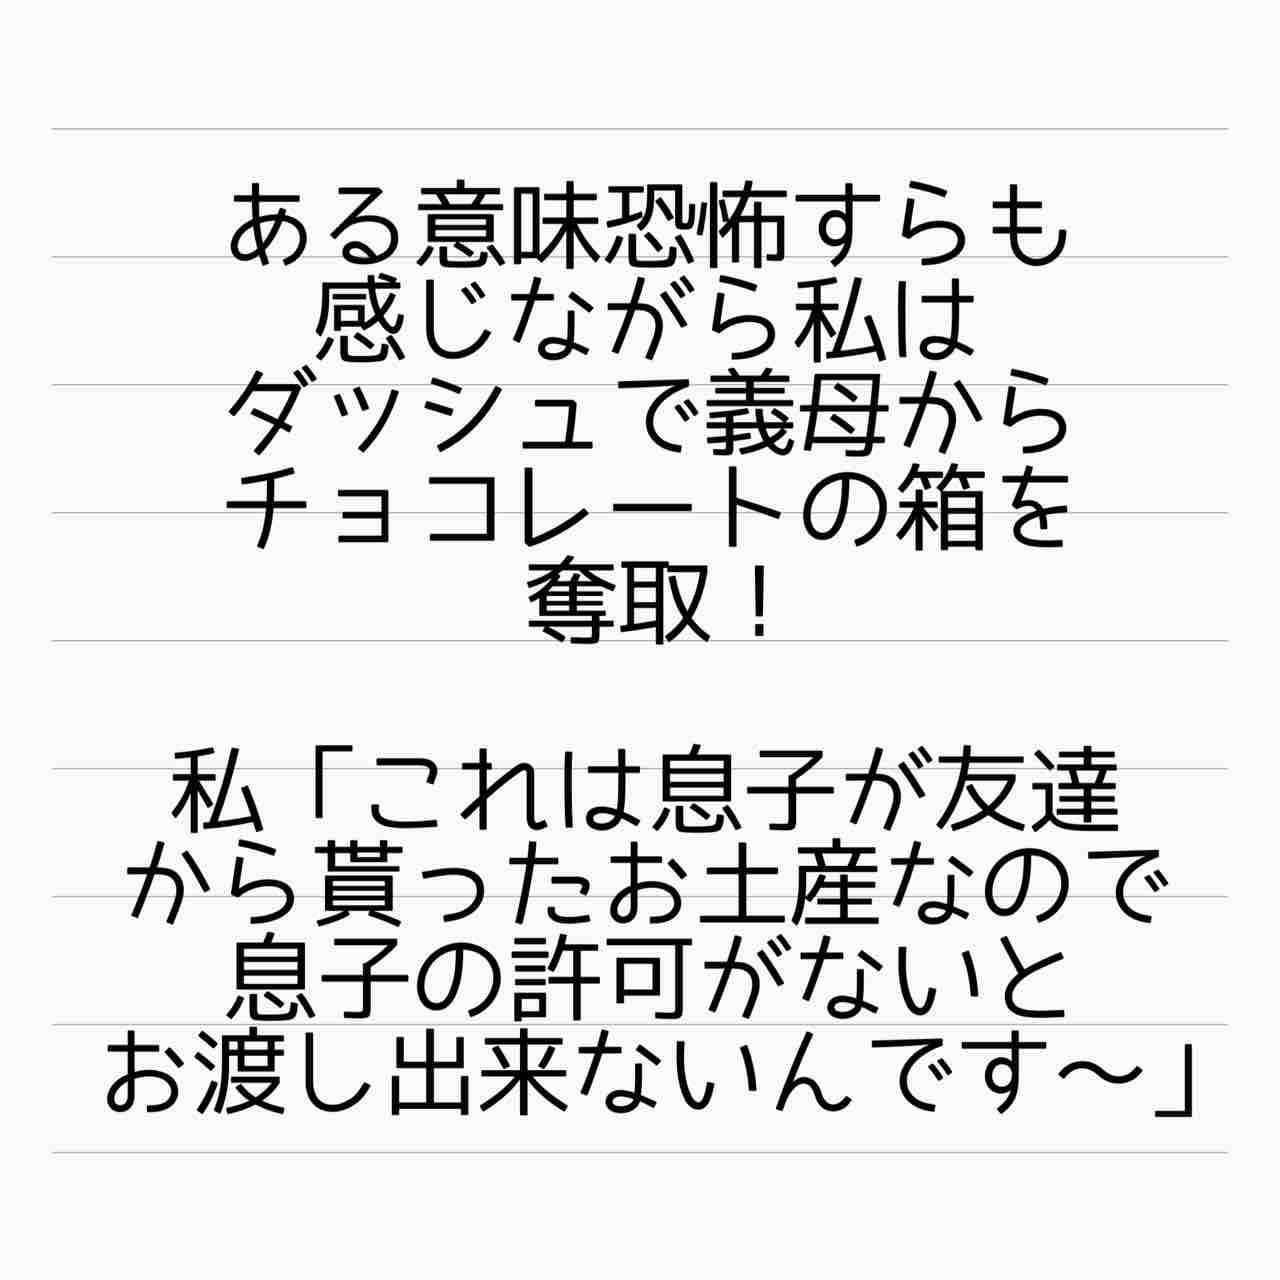 ある意味恐怖すらも
感じながら私は
ダッシュで義母から
チョコレートの箱を
奪取！
私「これは息子が友達
から貰ったお土産なので
息子の許可がないと
お渡し出来ないんです〜」